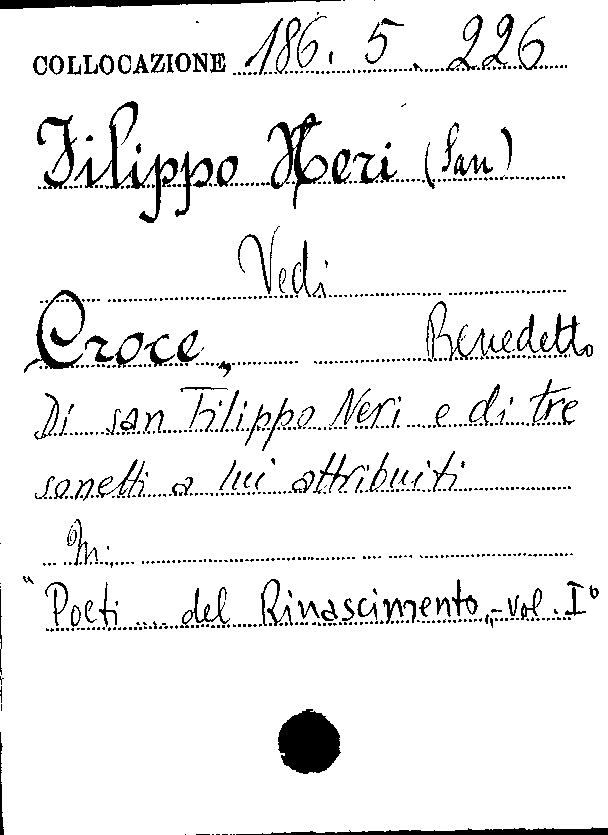 COLLOCAZIONE 186. 5. 226
Filippo Neri (San)
Vedi
Croce, Benedetto
Di san Filippo Neri e di tre
sonetti a lui attribuiti
In:
"Poeti ... del Rinascimento„ - vol. I°